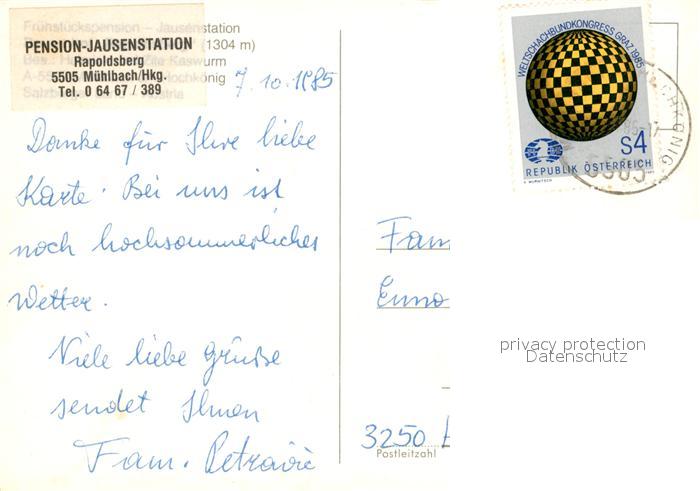 Frühstückspension – Jausenstation
PENSION-JAUSENSTATION
(1304 m)
Rapoldsberg
5505 Mühlbach/Hkg.
Tel. 0 64 67 / 389
7.10.1985
Danke für Ihre liebe
Karte. Bei uns ist
noch hochsommerliches
Wetter.
Viele liebe Grüsse
sendet Ihnen
Fam. Petravić
WELTSCHACHBUNDKONGRESS GRAZ 1985
S4
REPUBLIK ÖSTERREICH
5505
Fam
Enno
privacy protection
Datenschutz
3250
Postleitzahl